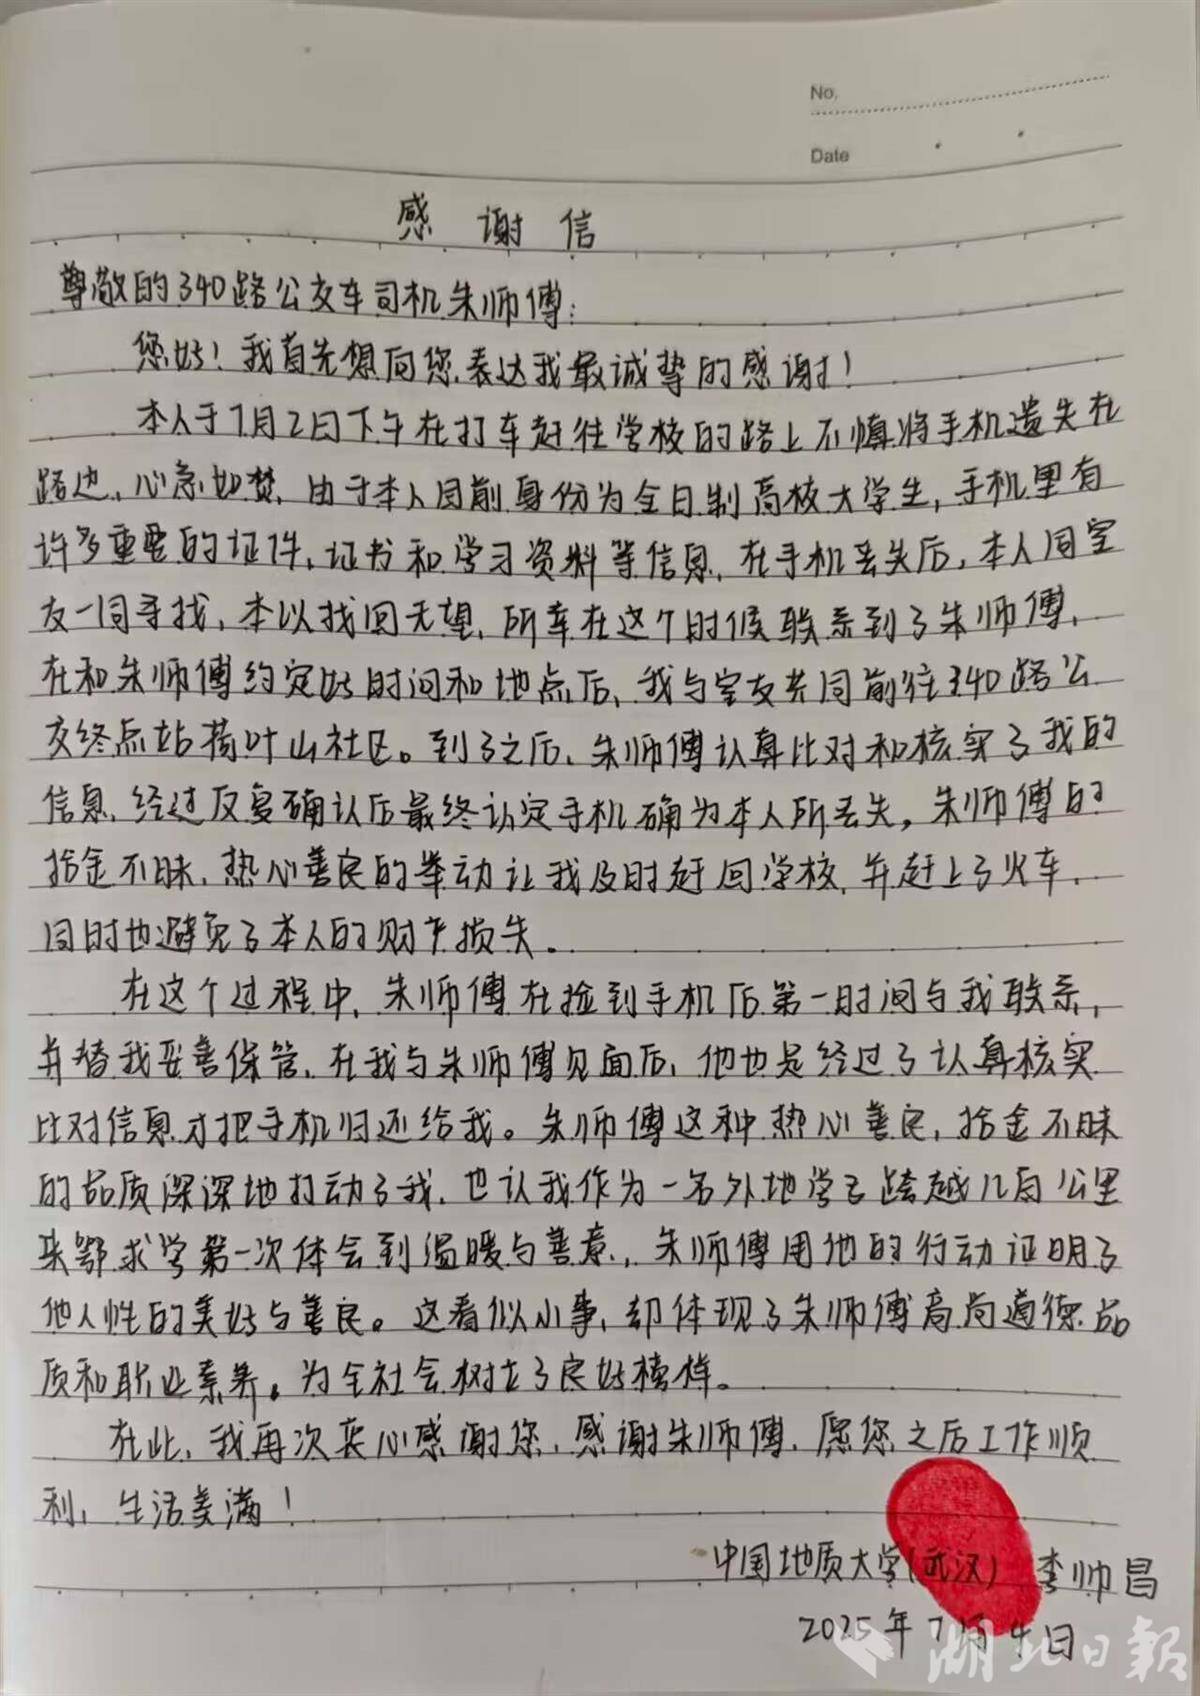 No.
Date
感谢信
尊敬的340路公交车司机朱师傅:
您好!我首先想向您表达我最诚挚的感谢!
本人于7月2日下午在打车赶往学校的路上不慎将手机遗失在
路边,心急如焚,由于本人目前身份为全日制高校大学生,手机里有
许多重要的证件、证书和学习资料等信息,在手机丢失后,本人同室
友一同寻找,本以找回无望,所幸在这个时候联系到了朱师傅,
在和朱师傅约定好时间和地点后,我与室友共同前往340路公
交终点站荷叶山社区。到了之后,朱师傅认真比对和核实了我的
信息,经过反复确认后最终认定手机确为本人所丢失,朱师傅的
拾金不昧、热心善良的举动让我及时赶回学校,并赶上了火车,
同时也避免了本人的财产损失。
在这个过程中,朱师傅在捡到手机后第一时间与我联系,
并替我妥善保管,在我与朱师傅见面后,他也是经过了认真核实
比对信息才把手机归还给我。朱师傅这种热心善良,拾金不昧
的品质深深地打动了我,也认我作为一名外地学子跨越几百公里
来鄂求学第一次体会到温暖与善意,朱师傅用他的行动证明了
他人性的美好与善良。这看似小事,却体现了朱师傅高尚道德品
质和职业素养。为全社会树立了良好榜样。
在此,我再次衷心感谢您,感谢朱师傅,愿您之后工作顺
利,生活美满!
中国地质大学(武汉) 李帅昌
2025年7月4日
湖北日报